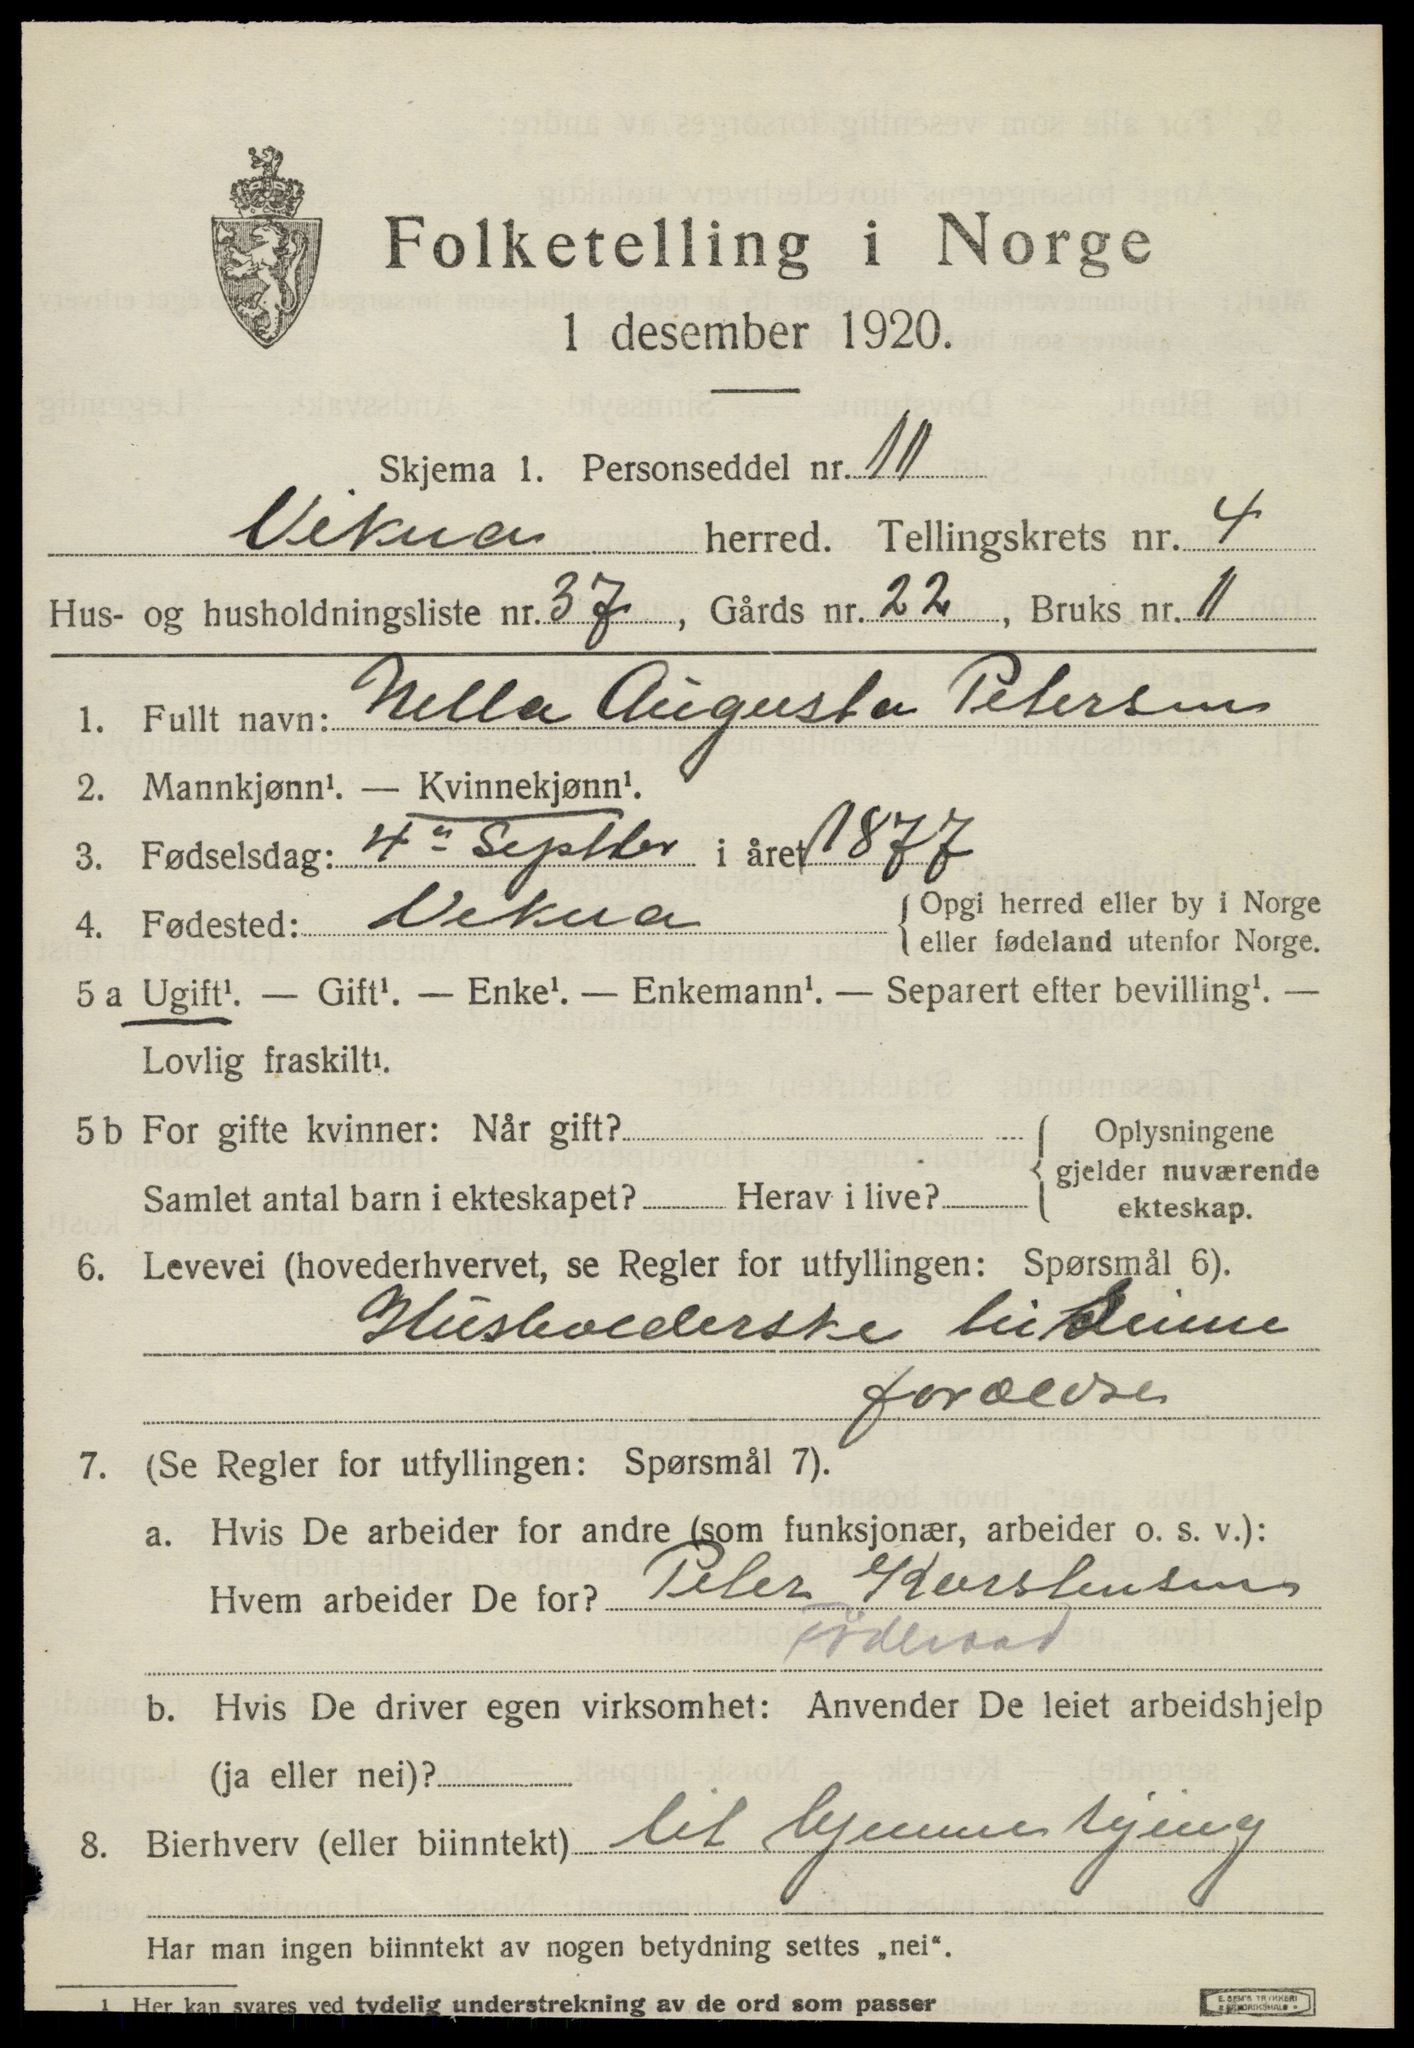 Folketelling i Norge
1 desember 1920.
Skjema 1. Personseddel nr. 11
Vikna herred. Tellingskrets nr. 4
Hus- og husholdningsliste nr. 37, Gårds nr. 22, Bruks nr. 11
1. Fullt navn: Nella Augusta Petersen
2. Mannkjønn¹. — Kvinnekjønn¹.
3. Fødselsdag: 4n Septbr i året 1877
4. Fødested: Vikna { Opgi herred eller by i Norge
eller fødeland utenfor Norge.
5 a Ugift¹. — Gift¹. — Enke¹. — Enkemann¹. — Separert efter bevilling¹. —
Lovlig fraskilt¹.
5 b For gifte kvinner: Når gift? { Oplysningene
gjelder nuværende
Samlet antal barn i ekteskapet? Herav i live? ekteskap.
6. Levevei (hovederhvervet, se Regler for utfyllingen: Spørsmål 6).
Husholderske hii Sinne
forældre
7. (Se Regler for utfyllingen: Spørsmål 7).
a. Hvis De arbeider for andre (som funksjonær, arbeider o. s. v.):
Hvem arbeider De for? Peter Karstensen
Föderaad
b. Hvis De driver egen virksomhet: Anvender De leiet arbeidshjelp
(ja eller nei)?
8. Bierhverv (eller biinntekt) lit hjemme sying
Har man ingen biinntekt av nogen betydning settes „nei“.
¹ Her kan svares ved tydelig understrekning av de ord som passer
E. SEM'S TRYKKERI
FREDRIKSHALD